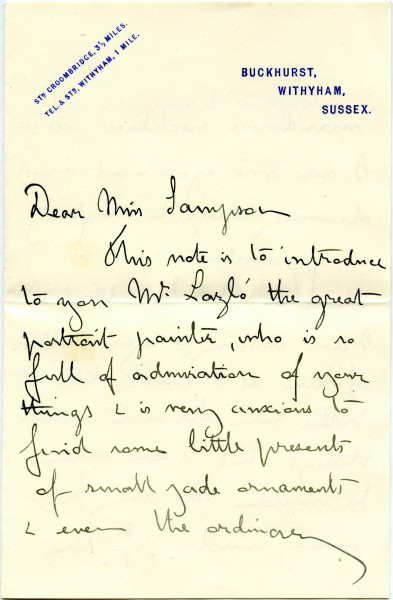 STN CROOMBRIDGE, 3½ MILES.
TEL. & STN, WITHYHAM, 1 MILE.
BUCKHURST,
WITHYHAM,
SUSSEX.
Dear Miss Sampson
This note is to introduce
to you Mr. Lazló the great
portrait painter, who is so
full of admiration of your
things & is very anxious to
find some little presents
of small jade ornaments
& even the ordinary